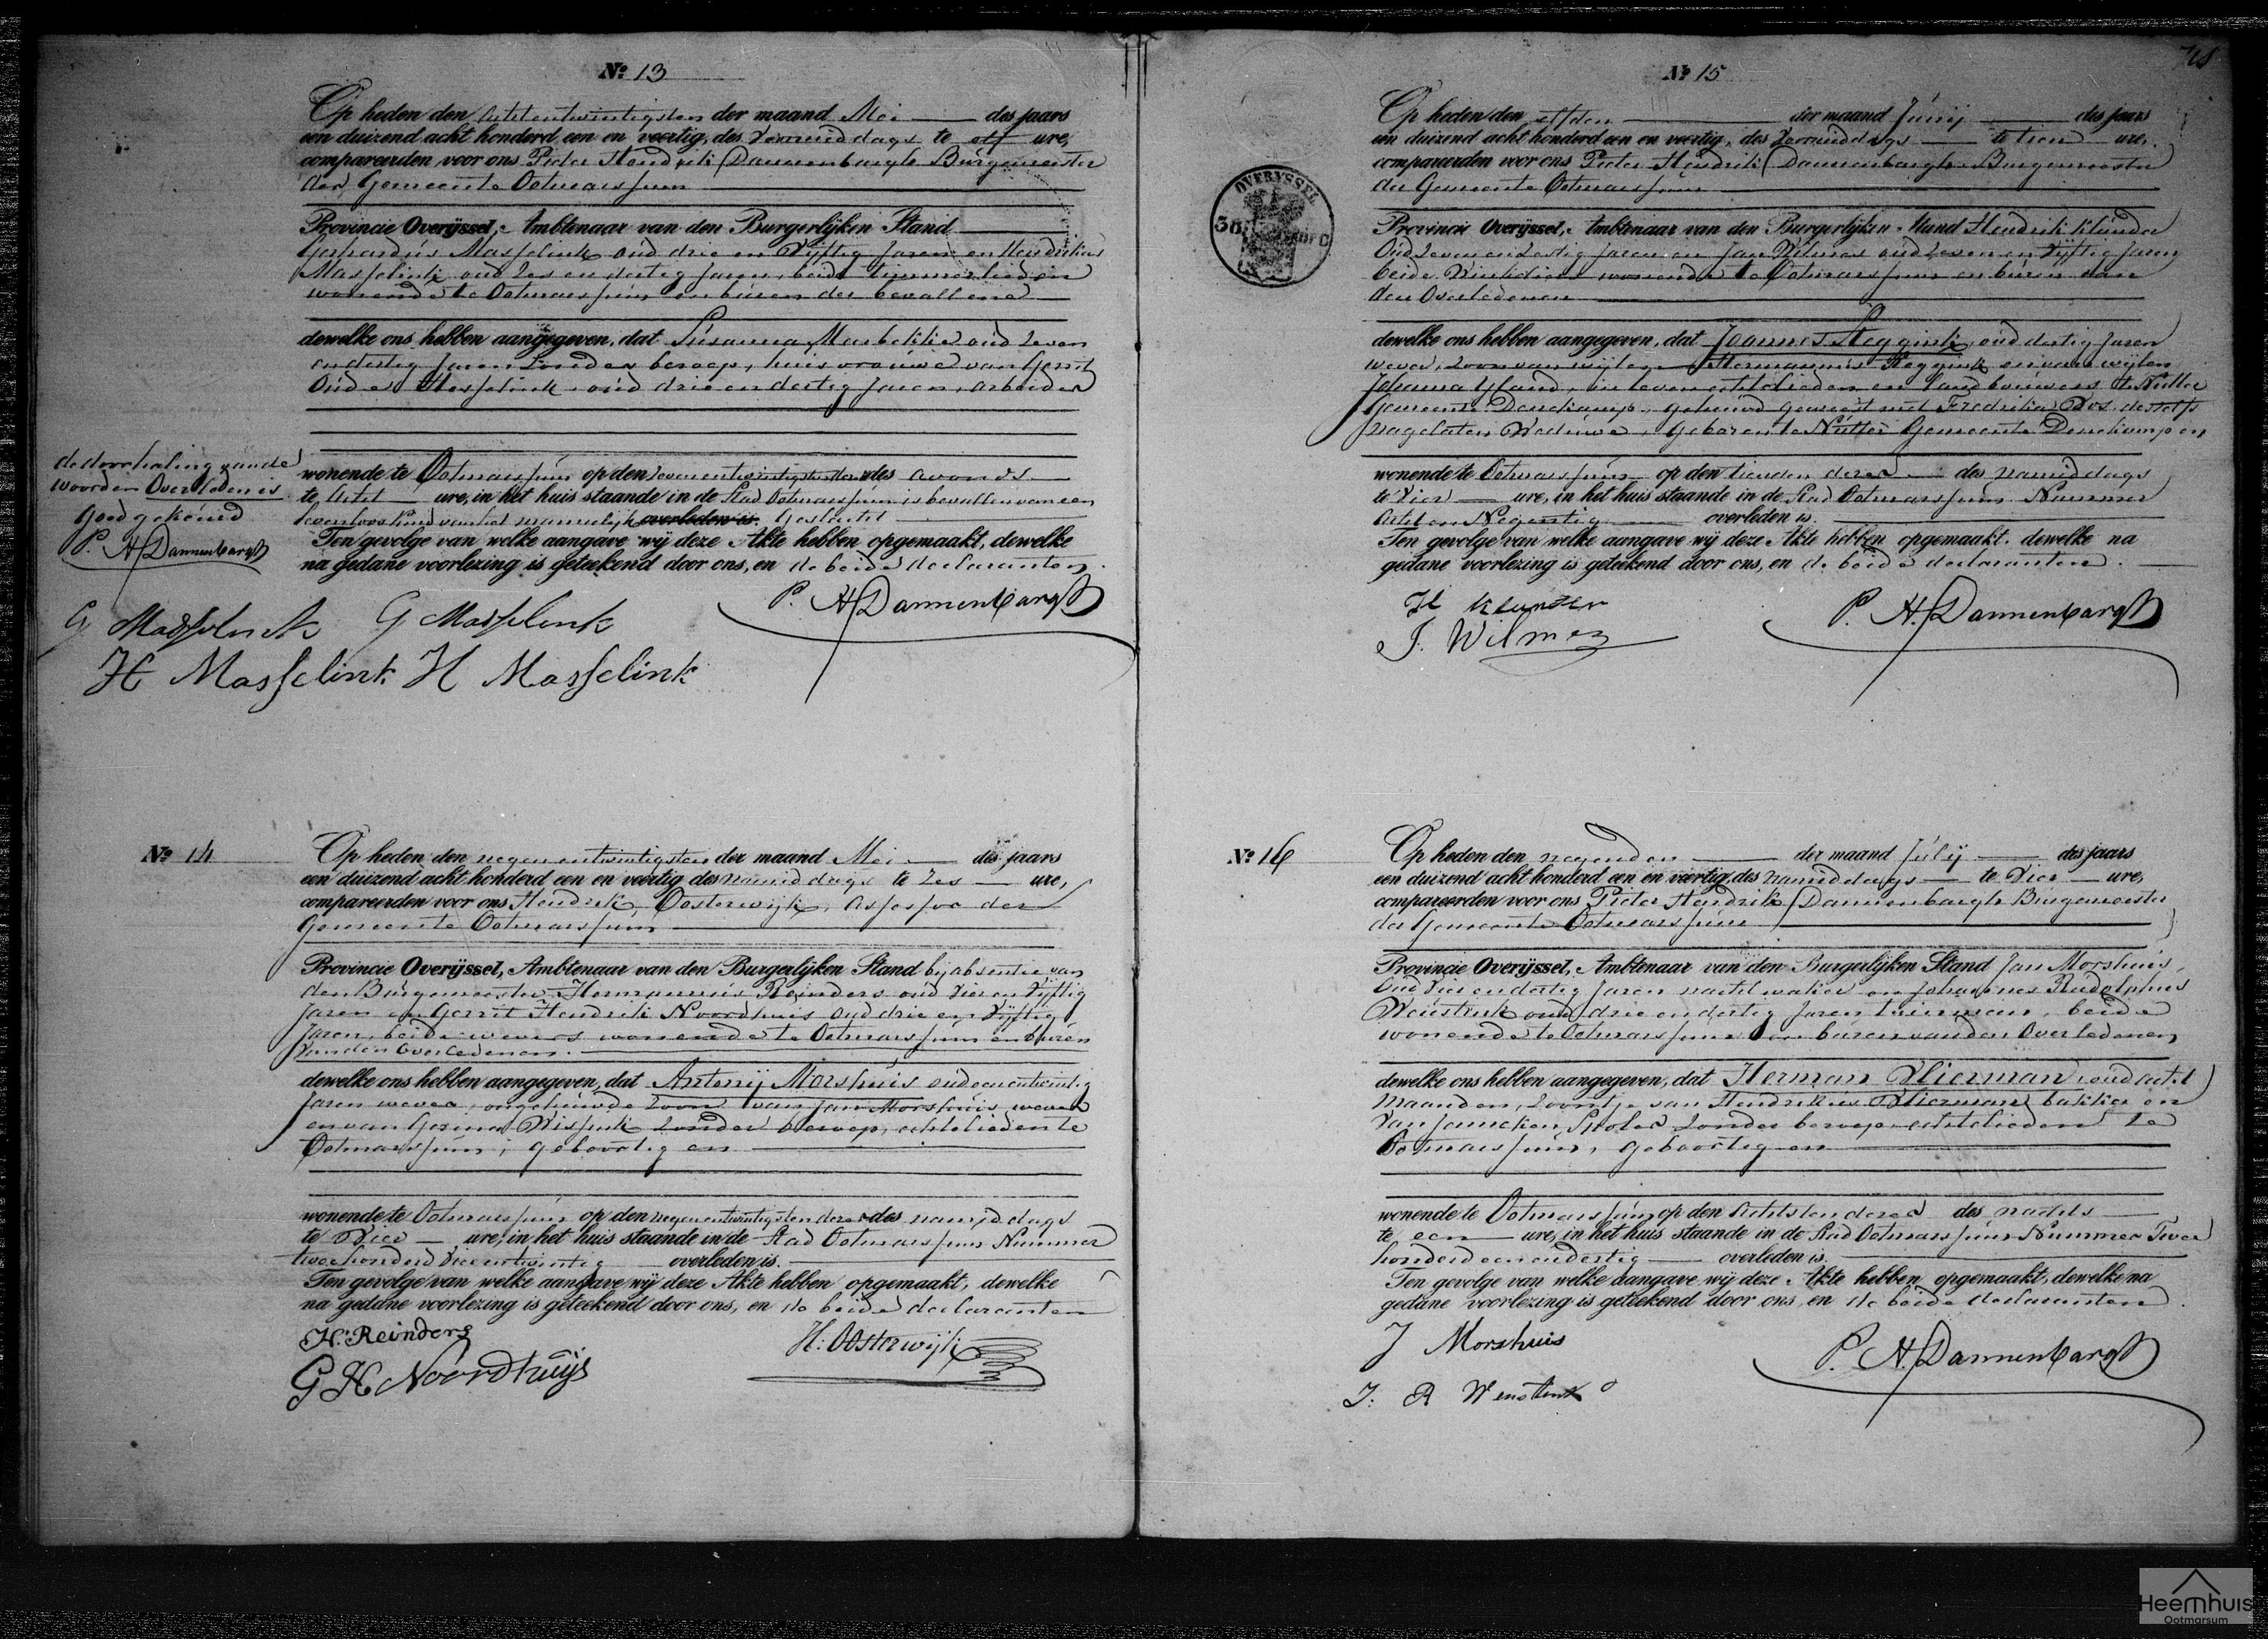 Nº 13
Op heden den achtentwintigsten der maand Mei des jaars
een duizend acht honderd een en veertig, des voormiddags te elf ure,
compareerden voor ons Pieter Hendrik Dannenbargh Burgemeester
der Gemeente Ootmarssum
Provincie Overijssel, Ambtenaar van den Burgerlijken Stand
Gerhardus Masselink oud drie en vijftig Jaren en Hendrikus
Masselink oud zes en dertig Jaren, beide timmerlieden
wonende te Ootmarssum en buren der bevallene
dewelke ons hebben aangegeven, dat Susanna oud zeven
en dertig Jaren zonder beroep, huisvrouwe van Gerrit
Oude oud drie en dertig Jaren, arbeider
de doorhaling van de
woorden Overleden is
goedgekeurd
P. H. Dannenbargh
wonende te Ootmarssum op den zevenentwintigsten dezer des avonds
te acht ure, in het huis staande in de Stad Ootmarssum is bevallen van een
levenloos kind van het mannelijk overleden is. Geslacht
Ten gevolge van welke aangave wij deze Akte hebben opgemaakt, dewelke
na gedane voorlezing is geteekend door ons, en de beide declaranten
P. H. Dannenbargh
G Masselink G Masselink
H Masselink H Masselink
Nº 14
Op heden den negenentwintigsten der maand Mei des jaars
een duizend acht honderd een en veertig des namiddags te zes ure,
compareerden voor ons Hendrik Oosterwijk, Assessor der
Gemeente Ootmarssum
Provincie Overijssel, Ambtenaar van den Burgerlijken Stand bij absentie van
den Burgemeester Hermannus Reinders oud vier en vijftig
Jaren en Gerrit Hendrik Noordhuis oud drie en vijftig
Jaren, beide wevers wonende te Ootmarssum en buren
van den Overledenen.
dewelke ons hebben aangegeven, dat Antonij Morshuis oud eenentwintig
Jaren wever, ongehuwde zoon van Jan Morshuis wever
en van Gesina zonder beroep, echtelieden te
Ootmarssum, geboortig en
wonende te Ootmarssum op den negenentwintigsten dezer des namiddags
te vier ure, in het huis staande in de Stad Ootmarssum Nummer
twee honderd vier en twintig overleden is.
Ten gevolge van welke aangave wij deze Akte hebben opgemaakt, dewelke
na gedane voorlezing is geteekend door ons, en de beide declaranten
H. Reinders
H: Oosterwijk
G H Noordhuijs
Nº 15
Op heden den elfden der maand Junij des jaars
een duizend acht honderd een en veertig, des voormiddags te tien ure,
compareerden voor ons Pieter Hendrik Dannenbargh Burgemeester
der Gemeente Ootmarssum
OVERYSSEL
Provincie Overijssel, Ambtenaar van den Burgerlijken Stand Hendrik Klunder
Oud zeven en zestig Jaren en Jan Wilmes oud zeven en vijftig Jaren
beide wonende te Ootmarssum en buren van
den Overledenen
dewelke ons hebben aangegeven, dat Joannes Steggink, oud dertig Jaren
wever, zoon van wijlen Hermannus Steggink en van wijlen
Johanna, in leven echtelieden en landbouwers te Nutter
Gemeente Denekamp, gehuwd geweest met Fredrika Vos, deszelfs
nagelaten Weduwe, Geboren te Nutter Gemeente Denekamp en
wonende te Ootmarssum op den tienden dezer des namiddags
te vier ure, in het huis staande in de Stad Ootmarssum Nummer
acht en Negentig overleden is.
Ten gevolge van welke aangave wij deze Akte hebben opgemaakt, dewelke na
gedane voorlezing is geteekend door ons, en de beide declaranten.
H Klunder
P. H. Dannenbargh
J. Wilmes
Nº 16
Op heden den negenden der maand Julij des jaars
een duizend acht honderd een en veertig, des namiddags te vier ure,
compareerden voor ons Pieter Hendrik Dannenbargh Burgemeester
der Gemeente Ootmarssum
Provincie Overijssel, Ambtenaar van den Burgerlijken Stand Jan Morshuis,
Oud vier en dertig Jaren nachtwaker en Johannes Rudolphus
Weustink oud drie en dertig Jaren, beide
wonende te Ootmarssum en buren van den Overledenen
dewelke ons hebben aangegeven, dat Herman Vlierman, oud acht
maanden, zoontje van Hendrikus Vlierman bakker en
van zonder beroep echtelieden te
Ootmarssum, geboortig en
wonende te Ootmarssum op den achtsten dezer des nachts
te een ure, in het huis staande in de Stad Ootmarssum Nummer Twee
honderd een en dertig overleden is.
Ten gevolge van welke aangave wij deze Akte hebben opgemaakt, dewelke na
gedane voorlezing is geteekend door ons, en de beide declaranten.
J Morshuis
P. H. Dannenbargh
J: R Weustink
Heemhuis
Ootmarsum